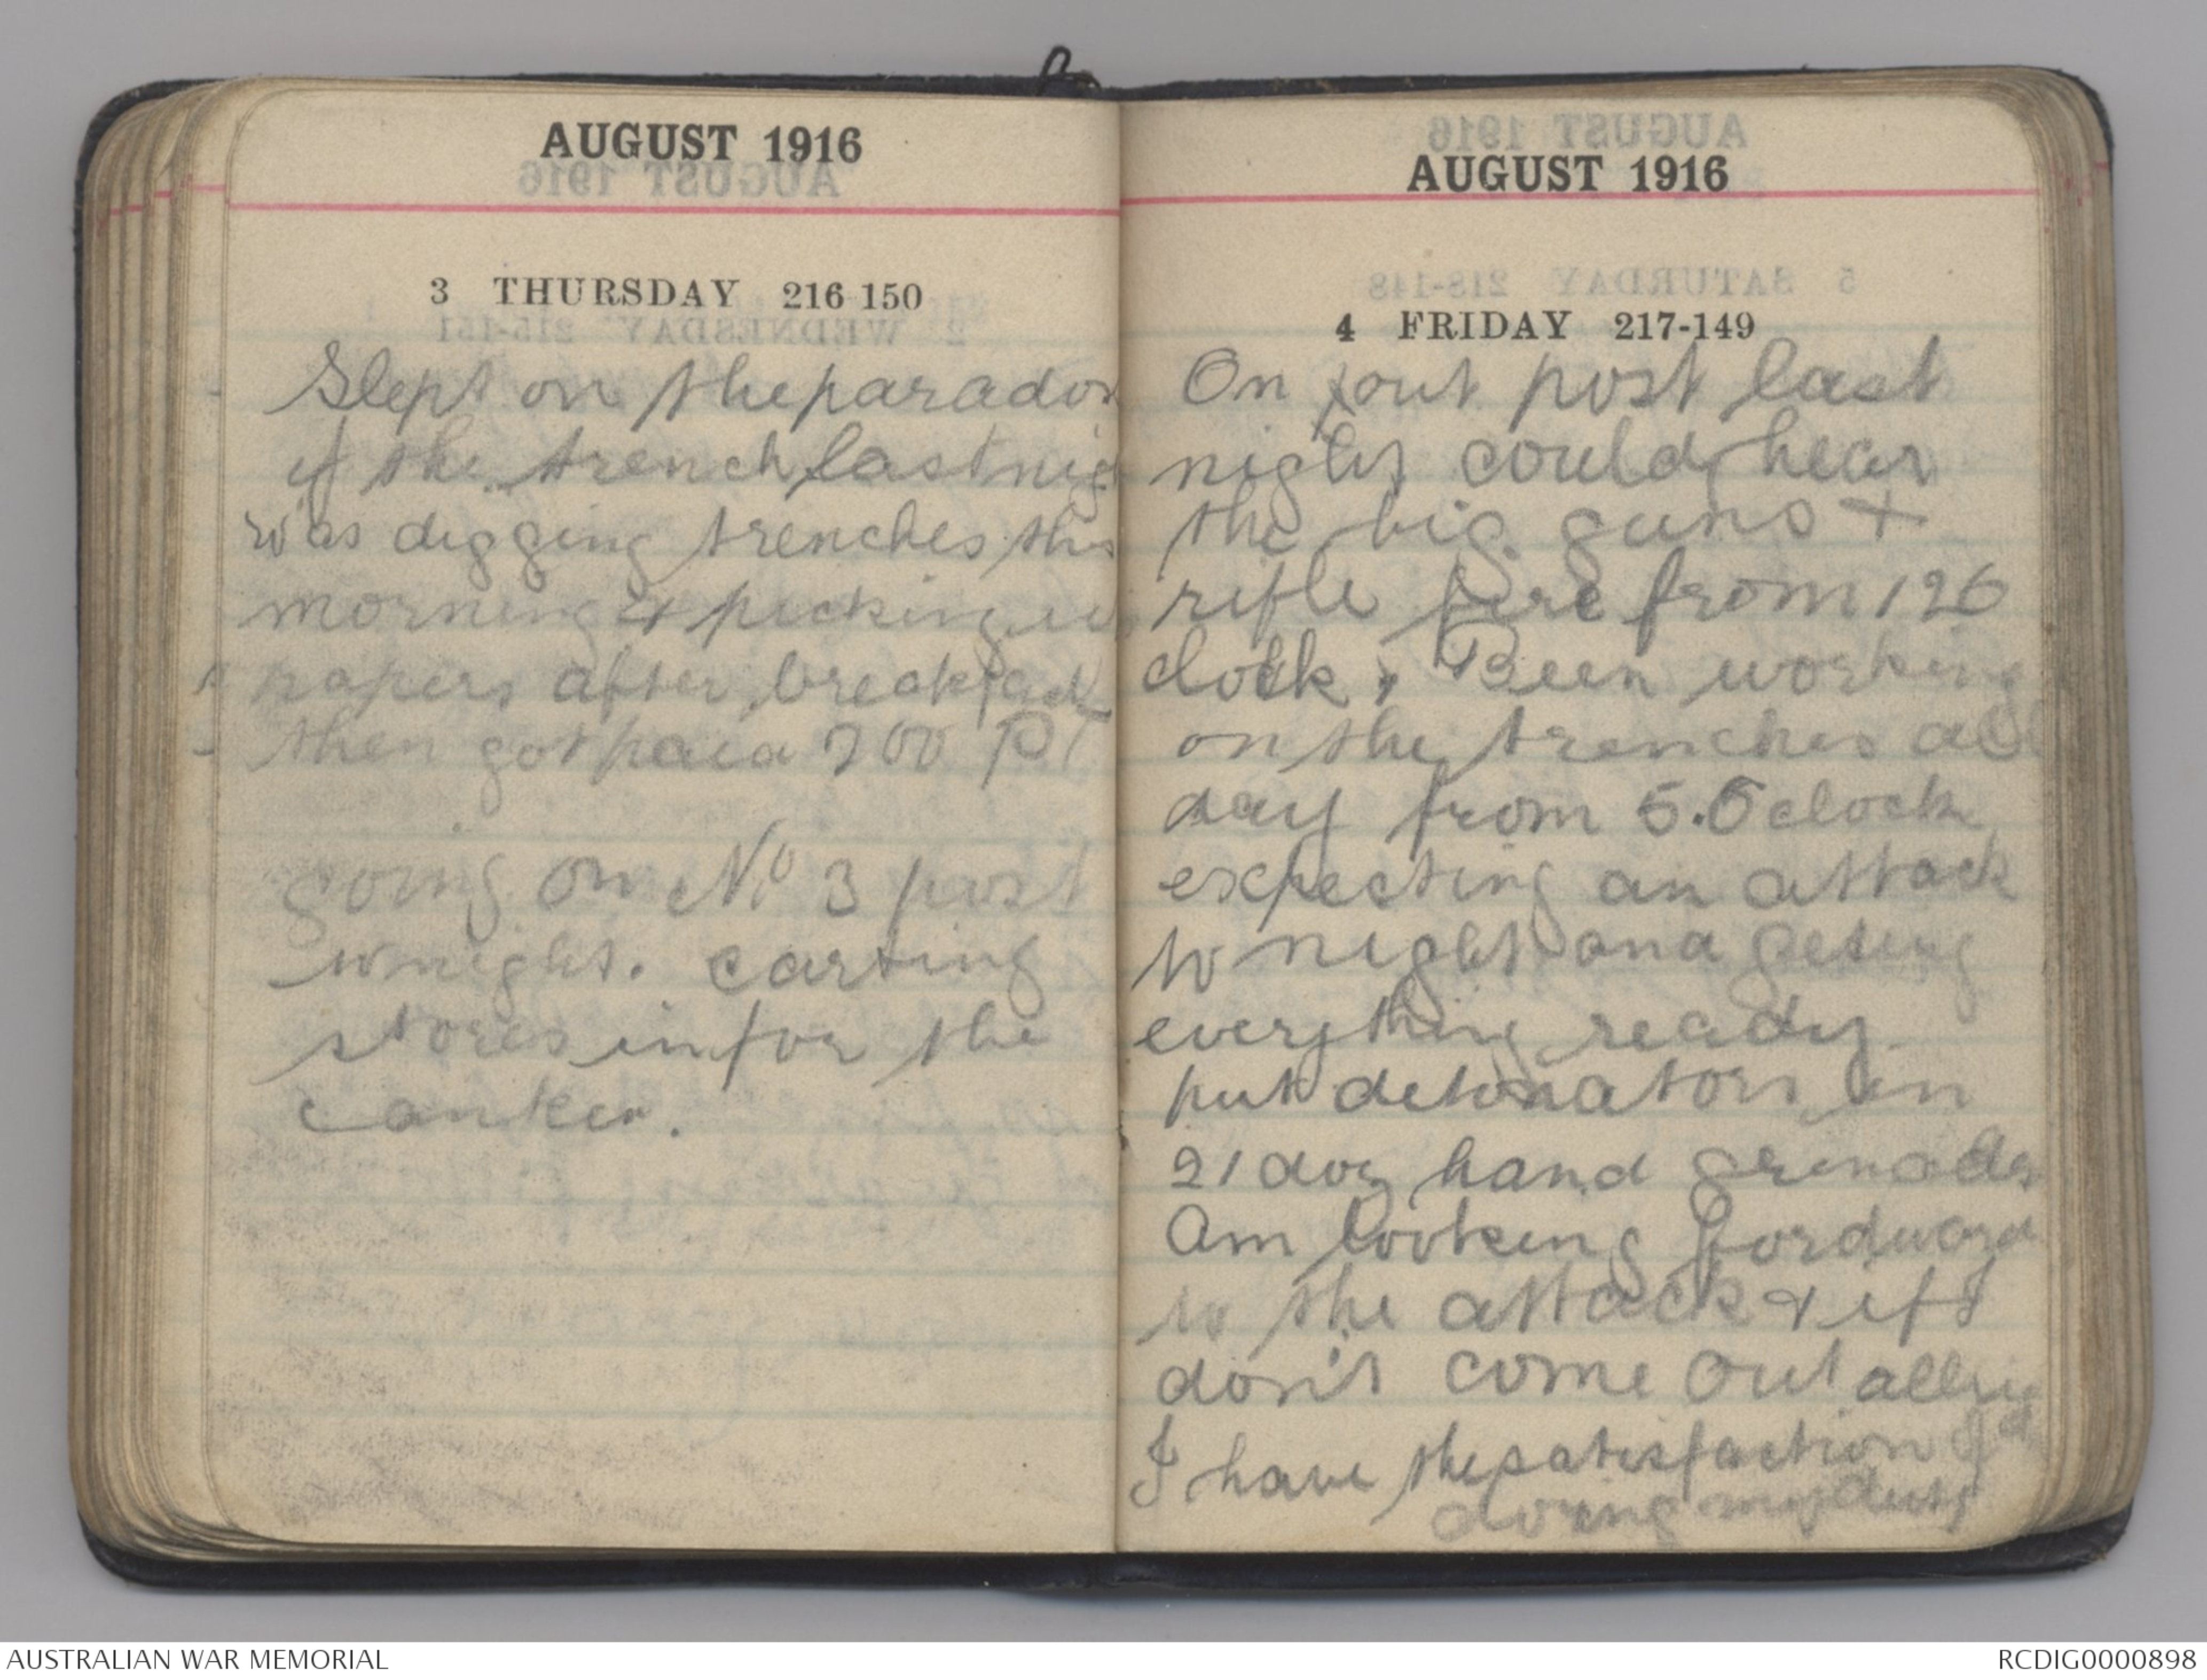 AUGUST 1916
3 THURSDAY 216 150
Slept on the parados
of the trench last nig
was digging trenches this
morning & picking u
papers after breakfast
then got paid 200 PT
going on No 3 post
tonight. carting
stores in for the
canteen.
AUGUST 1916
4 FRIDAY 217-149
On out post last
night could hear
the big guns +
rifle fire from 12 O
clock, Been working
on the trenches all
day from 5.O clock
expecting an attack
to night and geting
everything ready.
put detonators in
21 doz hand grenades
Am looking fordward
to the attack & if I
don't come out allrig
I have the satisfaction of
doing my duty
AUSTRALIAN WAR MEMORIAL
RCDIG0000898